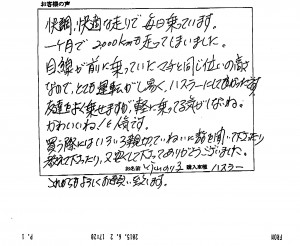 お客様の声
快調、快適な走りで毎日乗っています。
一ヶ月で2000kmも走ってしまいました。
目線が前に乗っていた と同じ位いの高
なので、とても運転がし易く、ハスラーにして
友達よく乗せますが、軽に乗ってる気がしないね。
かわいいね!と人気です。
買う際にはいろいろ親切でていねいに話を聞いて下さったり
教えて下さったり、又 して下さってありがとうございました。
お名前 購入車種 ハスラー
これからもよろしくお願い致します。
FROM 2015. 6. 2 17:20 P. 1